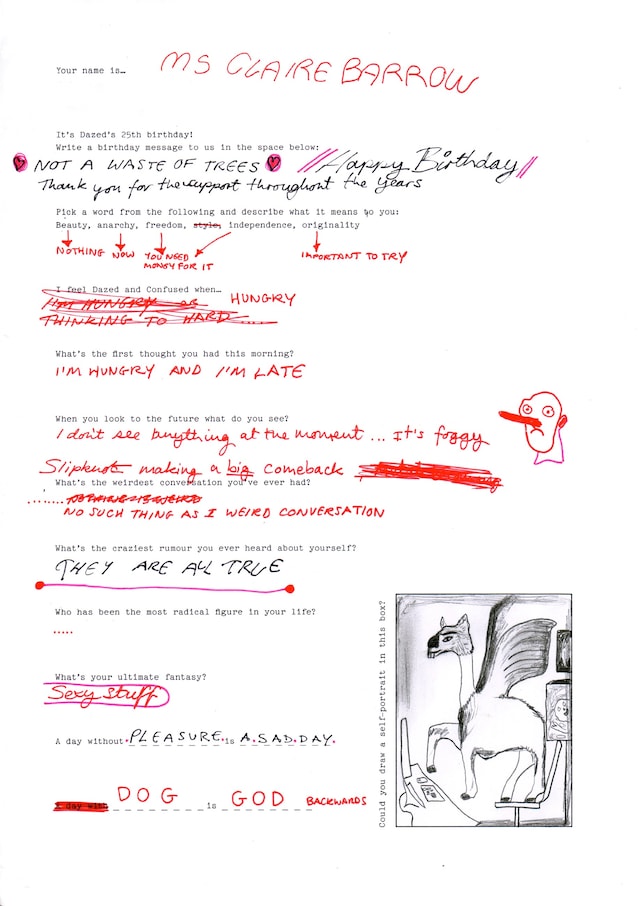 Your name is… MS CLAIRE BARROW
It's Dazed's 25th birthday!
Write a birthday message to us in the space below:
NOT A WASTE OF TREES Happy Birthday
Thank you for the support throughout the years
Pick a word from the following and describe what it means to you:
Beauty, anarchy, freedom, style, independence, originality
NOTHING NOW YOU NEED IMPORTANT TO TRY
MONEY FOR IT
I feel Dazed and Confused when…
I'M HUNGRY or HUNGRY
THINKING TO HARD.....
What's the first thought you had this morning?
I'M HUNGRY AND I'M LATE
When you look to the future what do you see?
I don't see anything at the moment ... It's foggy
Slipknot making a big comeback
What's the weirdest conversation you've ever had?
........ NOTHING IS WEIRD
NO SUCH THING AS I WEIRD CONVERSATION
What's the craziest rumour you ever heard about yourself?
THEY ARE ALL TRUE
Who has been the most radical figure in your life?
.....
What's your ultimate fantasy?
Sexy stuff
A day without PLEASURE is A.SAD.DAY.
A day with DOG is GOD BACKWARDS
Could you draw a self-portrait in this box?